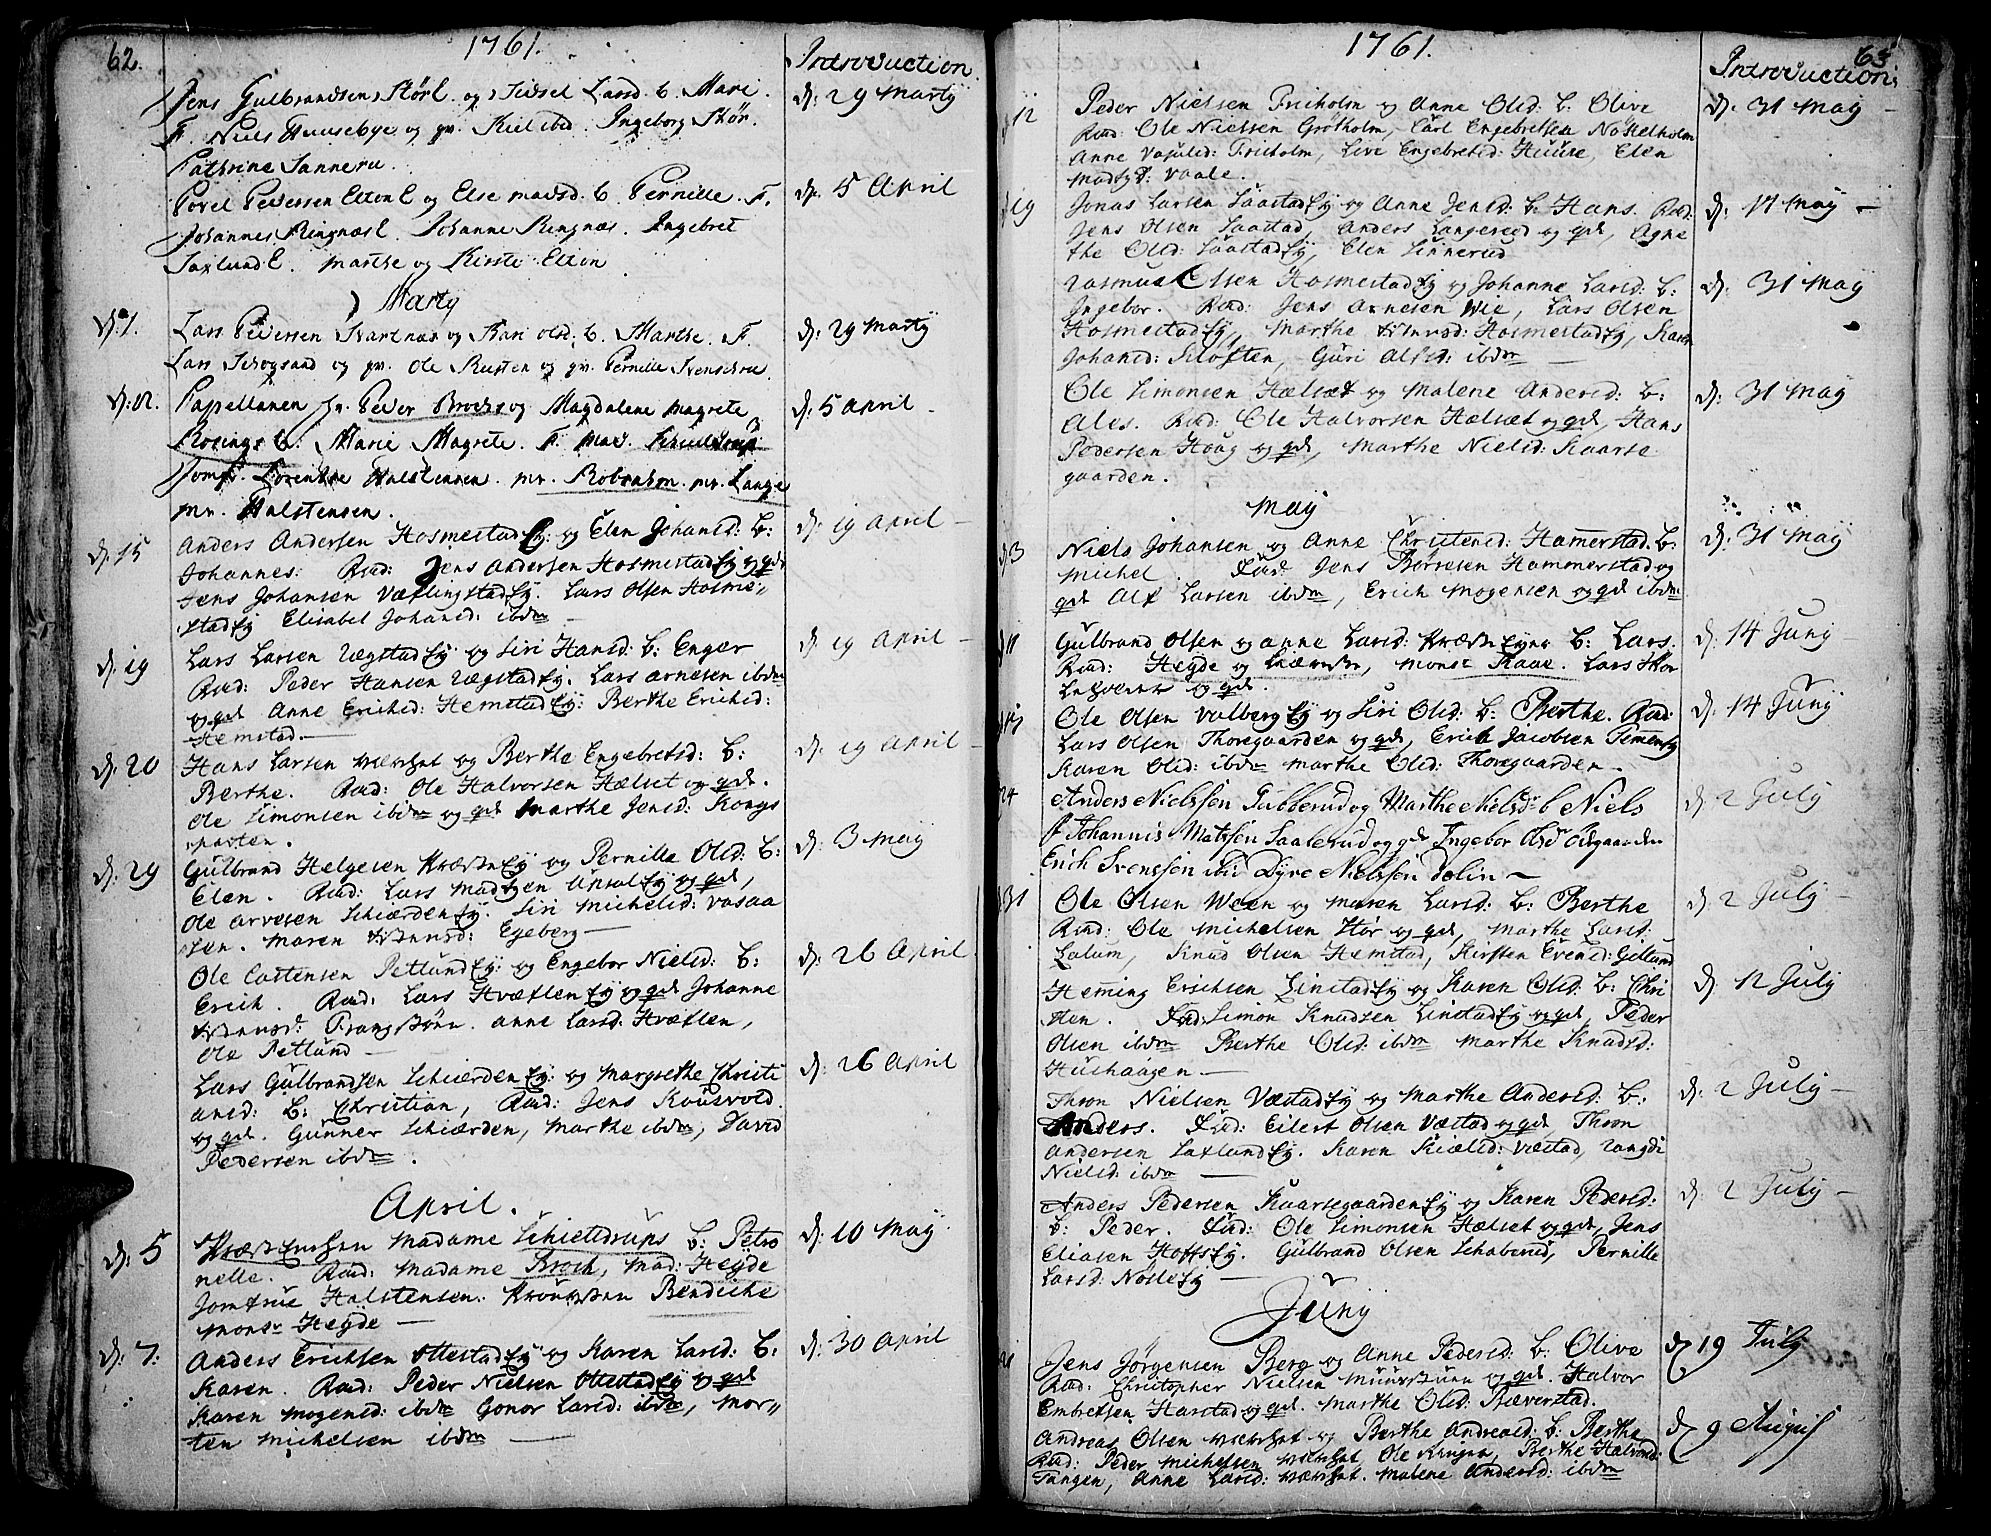 62.
1761.
Introduction.
Jens Gulbrandsen Størl. og Sidsel Larsd. b. Mari.
F. Niels Huusebye og qv. Kiel ibid. Ingeborg Stør.
Cathrine Sanneru
d: 29 Martij
Povel Pedersen Elton E og Else madsd. b. Pernille. F.
Johannes Ringnæs E. Johanne Ringnæs. Ingebret
Saxlund E. Marthe og Kirsti Elton
d: 5 April
Martij
d: 1.
Lars Pedersen Svartnæs og Kari olsd: b. Marthe. F.
Lars Schogsand og qv. Ole Rusten og qv. Pernille Svenschru
d: 29 Martij
Capellanen Hr. Peder Brochs og Magdalene Magrete
Rosings b: Marie Magrete. F. Mad.
Jomf. Dorenthe Halstensen. mr. Robensen. mr. Lange
mr. Halstensen.
d: 5 april
d: 15
Anders Andersen Hosmestad Ey: og Elen Johansd: b:
Johannes: Rad: Jens Andersen Hosmestad Ey og qde
Jens Johansen Væflingstad Ey. Lars Olsen Hosme„
stad Ey Elisabet Johansd: ibdm
d: 19 april
d: 19
Lars Larsen Ugstad Ey og Siri Hansd: b: Enger
Rad: Peder Hansen Ugstad Ey. Lars arnesen ibdm
og qde Anne Erichsd: Hemstad Ey: Berthe Erichsd:
Hemstad.
d: 19 April
d: 20
Hans Larsen og Berthe Engebretsd: b:
Berthe. Rad: Ole Halvorsen Hælset og qde.
Ole Simonsen ibdm og qde Marthe Jensd: Kongs
parten.
d: 19 April
d: 29
Gulbrand Helgesen Præste Ey og Pernille Olsd: b:
Elen. Rad: Lars Madtzen Upsal Ey og qde,
Ole arvesen Schiærden Ey. Siri Michelsd: Vasaa
sen. Maren Egeberg
d: 3 May
Ole Castensen Petlund Ey: og Engebor Nielsd: b:
Erich. Rad: Lars Hvæflen Ey og qde Johanne
Prangstønn. anne Larsd: Hvæflen,
Ole Petlund
d: 26 April
Lars Gulbrandsen Schiærden Ey: og Margrethe Christi
ansd: b: Christian, Rad: Jens Kousvold
og qde. Gunner Schiærden, Marthe ibdm, David
Pedersen ibdm.
d: 26 April
April.
d: 5
Madame Schieldrups b: Petro
nelle. Rad: Madame Broch, Mad: Heyde
Jomfrue Halstensen. Bendiche
Monsr Heyde
d: 10 May
d: 7:
Anders Erichsen Ottestad Ey og Karen Larsd: b:
Karen. Rad: Peder Nielsen Ottestad Ey og qde
Karen Mogensd: ibdm Gonor Larsd: ibdm, Mor„
ten Michelsen ibdm
d: 30 April
63
1761.
Introduction:
12
Peder Nielsen Friholm og Anne Olsd: b: Olive
Rad: Ole Nielsen Grøtholm, Carl Engebretsen Nøstelholm
Anne Friholm, Live Engebretsd: Huuse, Elen
Madtzd: Vaale.
d: 31 May
19
Jonas Larsen Saastad Ey og Anne Jensd: b: Hans. Rad:
Jens Olsen Saastad, Anders Langereed og qde, Agne
the Olsd: Saastad Ey, Elen Sinnerud
d: 17 May
Rasmus Olsen Hosmestad Ey og Johanne Larsd: b:
Ingebor. Rad: Jens Arnesen Wie, Lars Olsen
Hosmestad Ey, Marthe Hosmestad Ey, Karen
Johansd: Kloften, Guri Alfsd: ibdm
d: 31 May
Ole Simonsen Hælset og Malene Andersd: b:
Ales. Rad: Ole Halvorsen Hælset og qde, Hans
Pedersen Houg og qde, Marthe Nielsd: Kaarse
gaarden.
d: 31 May
May
3
Niels Johansen og Anne Christensd: Hamerstad. b:
Michel. Fad: Jens Børresen Hammerstad og
qde Alf Larsen ibdm, Erich Mogensen og qde ibdm
d: 31 May
11
Gulbrand Olsen og anne Larsd: Præste Eyer b: Lars.
Rad: Heyde og, Monsr Kaae. Lars Skor
og qde.
d: 14 Junij
Ole Olsen Valberg Ey og Siri Olsd: b: Berthe. Rad:
Lars Olsen Thoregaarden og qde, Erich Jacobsen
Karen Olsd: ibdm Marthe Olsd: Thoregaarden
d: 14 Junij
24
Anders Nielssen Tubberud og Marthe Nielsdr b Niels
f Johannis Matzsen Saalerud og qde Ingebor Olsdr
Erich Svenssen ibid Dyre Nielssen Dolin
d: 2 July
31
Ole Olsen Ween og Maren Larsd: b: Berthe
Rad: Ole Michelsen Hør og qde, Marthe Larsd:
Lalum, Knud Olsen Hemstad, Kirsten Evensd: Gillund
d: 2 July
Heming Erichsen Linstad Ey og Karen Olsd: b: Chri
sten. Fad: Simon Knudsen Linstad Ey og qde, Peder
Olsen ibdm Berthe Olsd: ibdm Marthe Knudsd:
Hushaagen
d: 12 July
Thron Nielsen Væstad Ey og Marthe Andersd: b:
Anders. Fad: Eilert Olsen Væstad og qde, Thron
andersen Saxlund Ey. Karen Kielsd: Væstad, Rangdi
Nielsd: ibdm
d: 2 July
Anders Pedersen Kaarsegaarden Ey og Karen Pedersd:
b: Peder. Fad: Ole Simonsen Hælset og qde, Jens
Eliasen Hoffs Ey. Gulbrand Olsen Schaberud, Pernille
Larsd: Nøste Ey
d: 2 July
Junij
Jens Jørgensen Berg og Anne Pedersd: b: Olive
Rad: Christopher Nielsen og qde. Halvor
Embretsen Harstad og qde. Marthe Olsd: Bæverstad.
d 19 July
Andreas Olsen og Berthe Andreasd: b: Berthe
Rad: Peder Michelsen, Ole Ringen, Berthe Halvorsd:
Tangen, Anne Larsd: Malene Andersd: ibdm
d 9 August